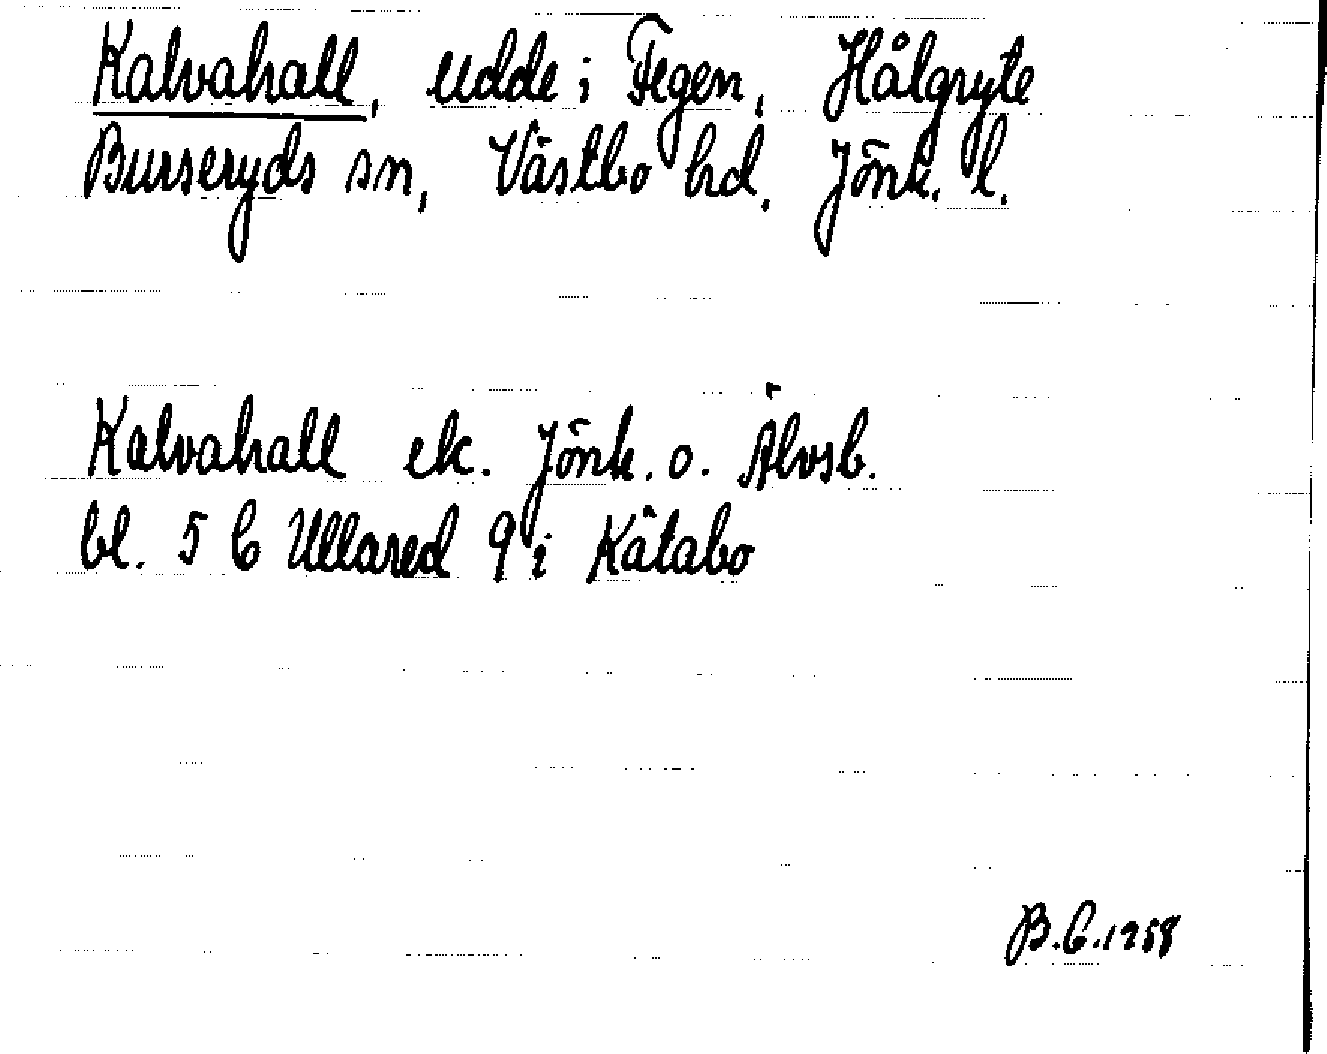 Kalvahall, udde i Fegen, Hålgryte
Burseryds sn, Västbo hd, Jönk. l.
Kalvahall ek. Jönk. o. Älvsb.
bl. 5 C Ullared 9 i Kåtabo
B.C. 1958